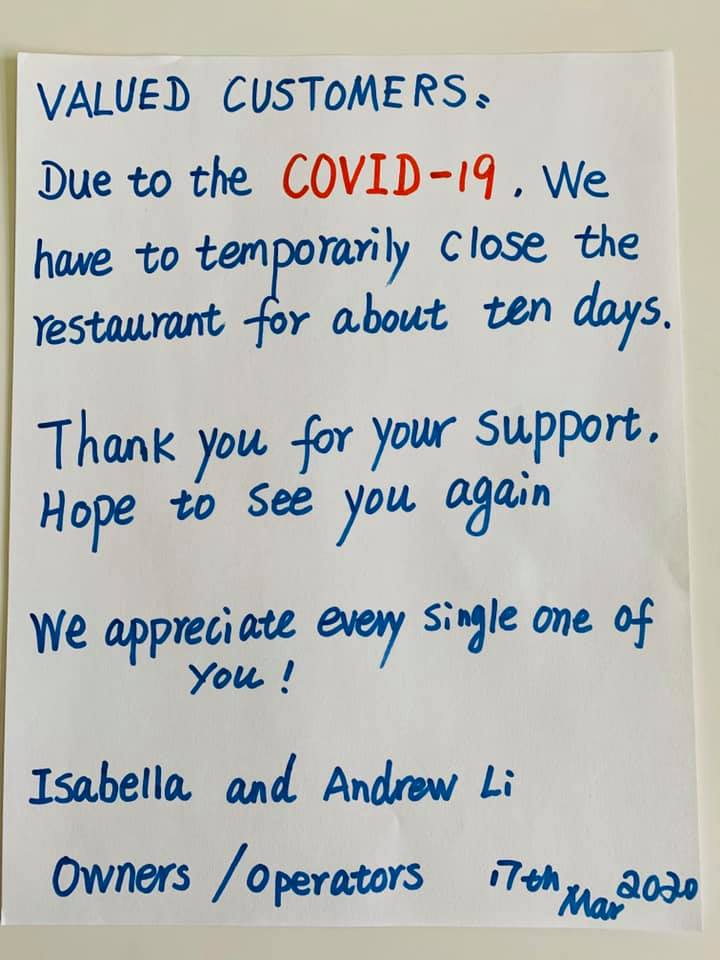 VALUED CUSTOMERS:
Due to the COVID-19. We
have to temporarily close the
restaurant for about ten days.
Thank you for your support.
Hope to see you again
We appreciate every single one of
you!
Isabella and Andrew Li
Owners/operators 17th Mar 2020